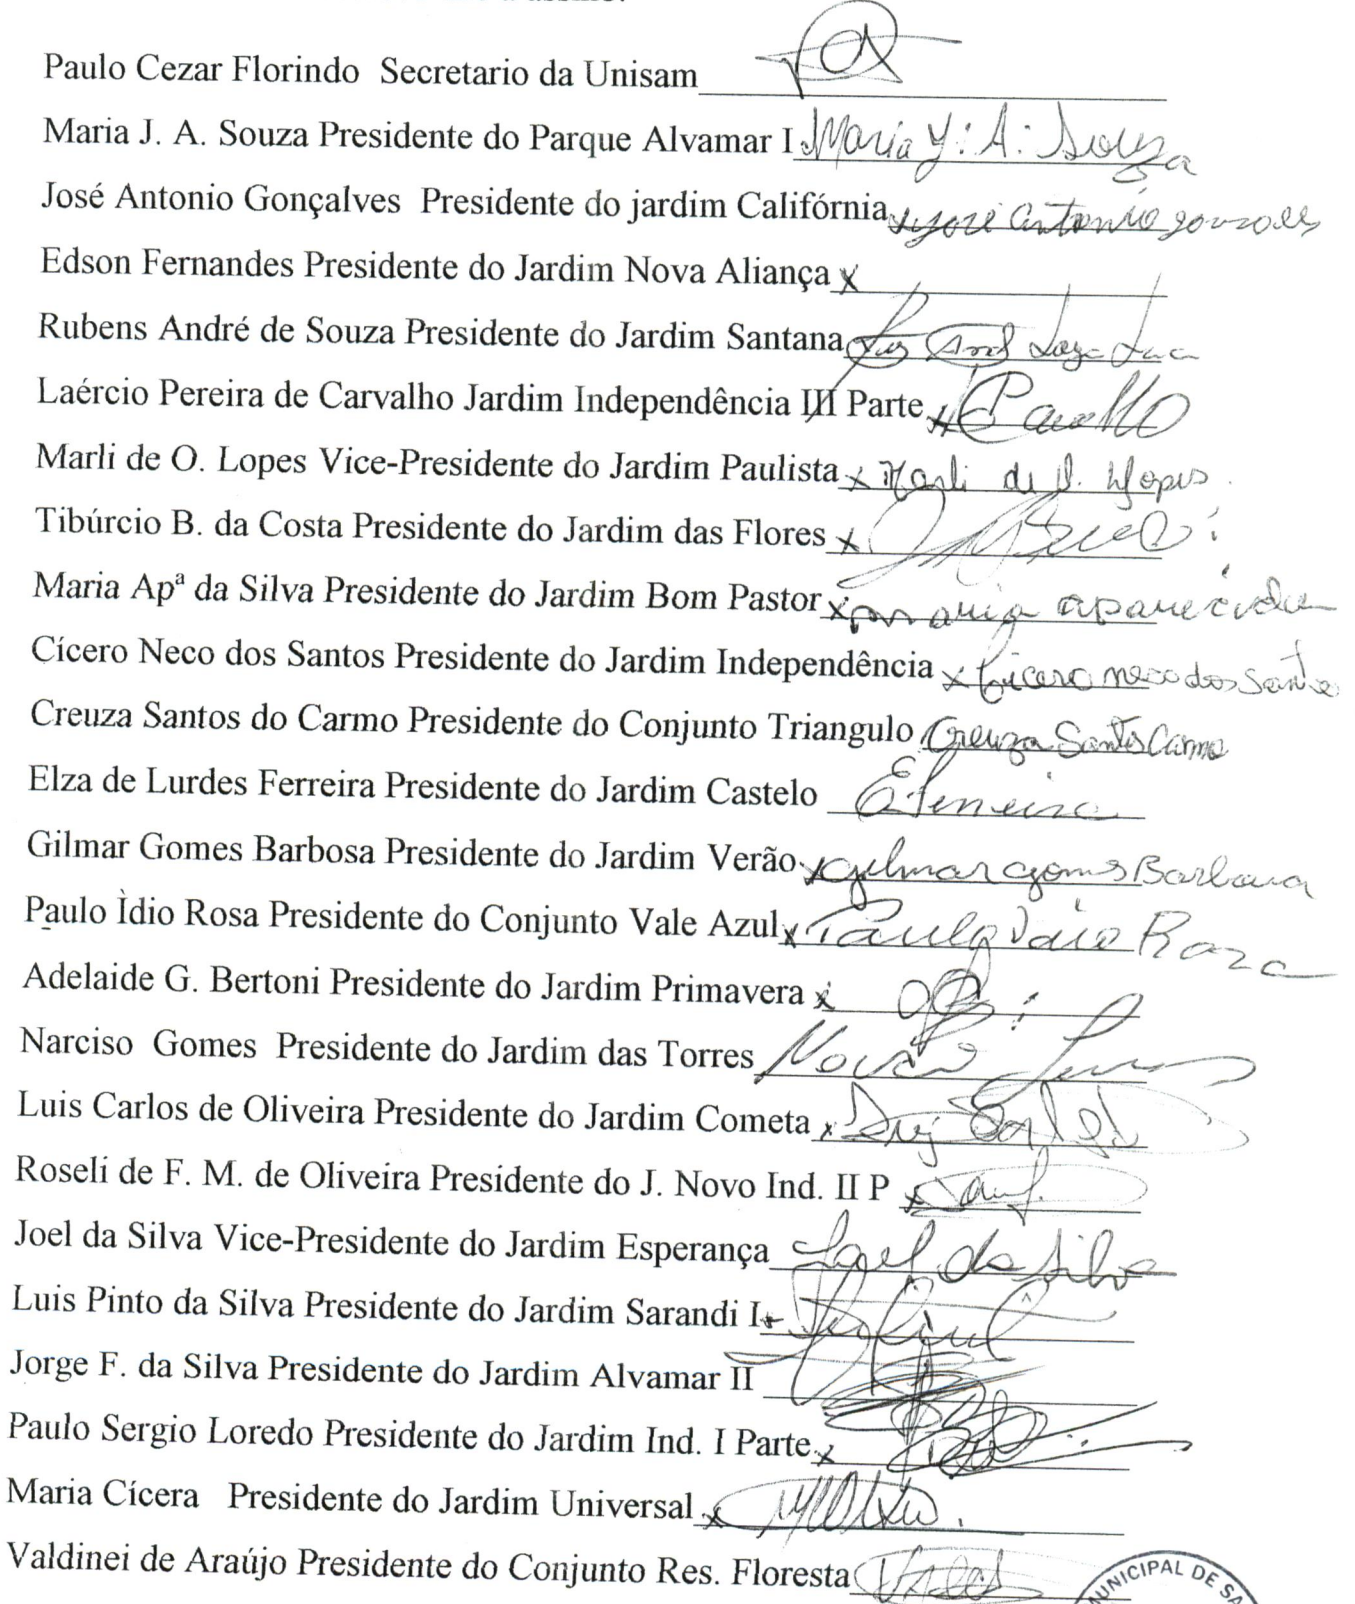 Paulo Cezar Florindo  Secretario da Unisam
Maria J. A. Souza Presidente do Parque Alvamar I Maria J. A. Souza
José Antonio Gonçalves  Presidente do jardim Califórnia x José Antonio
Edson Fernandes Presidente do Jardim Nova Aliança x
Rubens André de Souza Presidente do Jardim Santana
Laércio Pereira de Carvalho Jardim Independência III Parte x
Marli de O. Lopes Vice-Presidente do Jardim Paulista x Marli de O. Lopes
Tibúrcio B. da Costa Presidente do Jardim das Flores x
Maria Apª da Silva Presidente do Jardim Bom Pastor x maria aparecida
Cícero Neco dos Santos Presidente do Jardim Independência x Cicero neco dos Santos
Creuza Santos do Carmo Presidente do Conjunto Triangulo Creuza Santos Carmo
Elza de Lurdes Ferreira Presidente do Jardim Castelo E. Ferreira
Gilmar Gomes Barbosa Presidente do Jardim Verão x Gilmar gomes Barbosa
Paulo Ìdio Rosa Presidente do Conjunto Vale Azul x Paulo Idio Roza
Adelaide G. Bertoni Presidente do Jardim Primavera x
Narciso  Gomes  Presidente do Jardim das Torres
Luis Carlos de Oliveira Presidente do Jardim Cometa x
Roseli de F. M. de Oliveira Presidente do J. Novo Ind. II P x
Joel da Silva Vice-Presidente do Jardim Esperança Joel da Silva
Luis Pinto da Silva Presidente do Jardim Sarandi I
Jorge F. da Silva Presidente do Jardim Alvamar II
Paulo Sergio Loredo Presidente do Jardim Ind. I Parte x
Maria Cícera   Presidente do Jardim Universal x
Valdinei de Araújo Presidente do Conjunto Res. Floresta
UNICIPAL DE SA